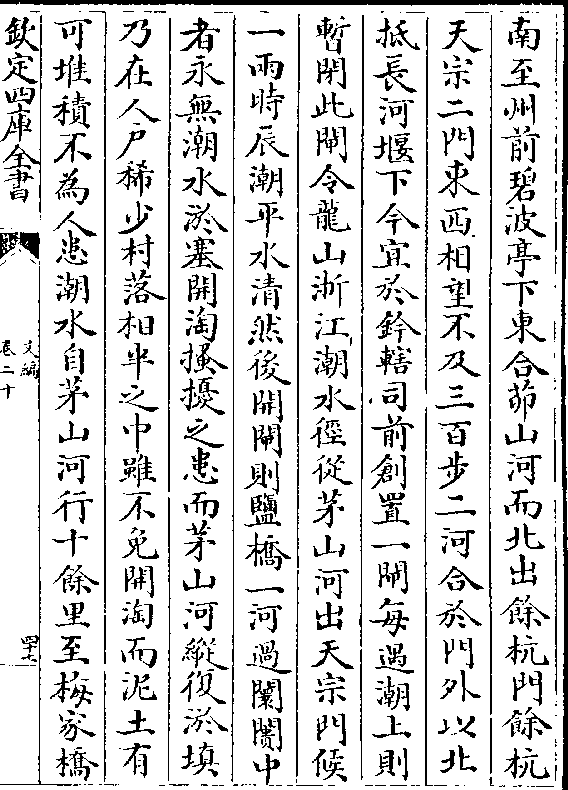 南至州前碧波亭下東合茆山河而北出餘杭門餘杭
天宗二門東西相望不及三百步二河合於門外以北
抵長河堰下今宜於鈐轄司前創置一閘每遇潮上則
暫閉此閘令龍山浙江潮水徑從茅山河出天宗門候
一兩時辰潮平水清然後開閘則鹽橋一河過闤闠中
者永無潮水淤塞開淘搔擾之患而茅山河縱復淤填
乃在人户稀少村落相半之中雖不免開淘而泥土有
可堆積不為人患潮水自茅山河行十餘里至梅家橋
欽定四庫全書
文編
卷二十
四十六